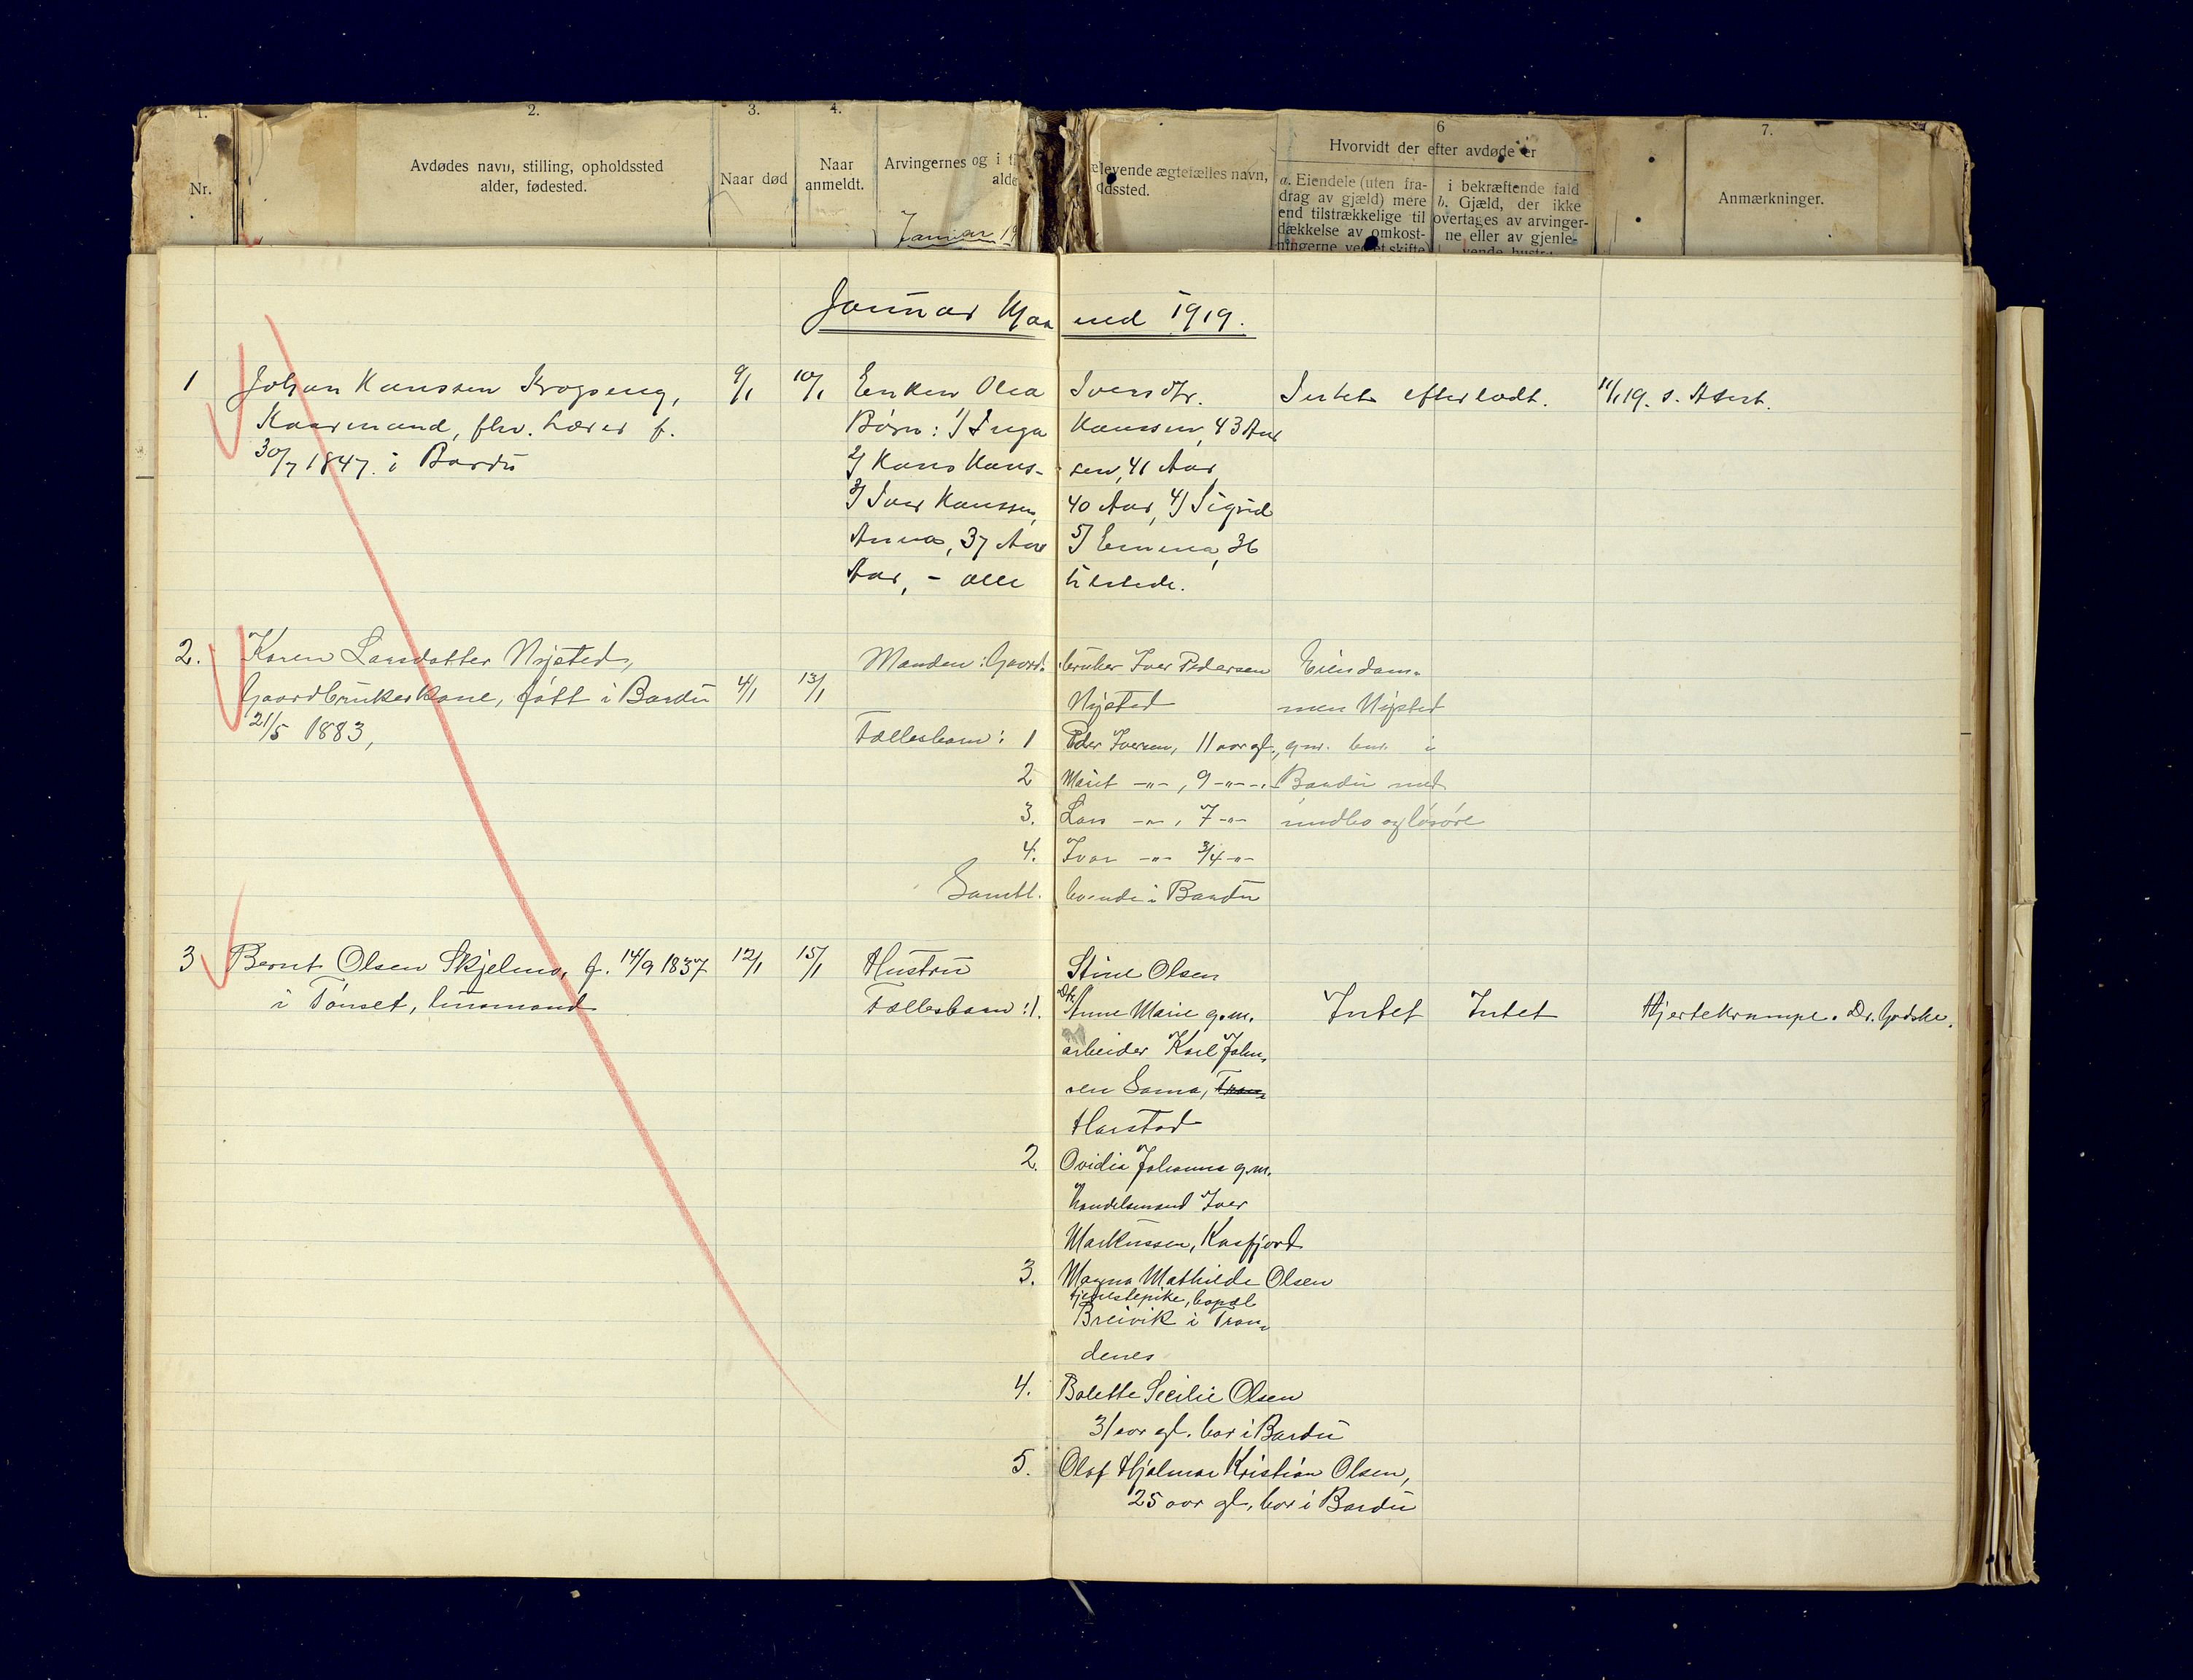 1. 2. 3. 4. 6 7.
Nr.
Avdødes navn, stilling, opholdssted
alder, fødested.
Naar død
Naar
anmeldt.
Arvingernes og i
alde
levende ægtefælles navn,
dssted.
Hvorvidt der efter avdøde er
a. Eiendele (uten fra-
drag av gjæld) mere
end tilstrækkelige til
dækkelse av omkost-
ningerne ved et skifte)
i bekræftende fald
b. Gjæld, der ikke
overtages av arvinger-
ne eller av gjenle-
vende hustru
Anmærkninger.
Januar 19
Januar Maaned 1919.
1 Johan Hanssen Krogseng, 9/1 10/1 Enken Olea Iversdtr. Intet efterladt. 11/1 19. s. Attest.
Kaarmand, fhv. Lærer f. Børn: 1/ Inga Hanssen, 43 Aar
30/7 1847. i Bardu 2/ Hans Hanssen, 41 Aar
3/ Iver Hanssen, 40 Aar, 4/ Sigrid
Anna, 37 Aar 5/ Emma, 36
Aar, - alle tilstede.
2. Karen Larsdatter Nysted, Manden: Gaard- bruker Iver Pedersen Eiendom-
Gaardbrukerkone, født i Bardu 4/1 13/1 Nysted men Nysted
21/5 1883, Fællesbarn: 1 Peder Iversen, 11 aar gl., gnr. bnr. i
2 Marit -"-, 9 -"- Bardu med
3. Lars -"-, 7 -"- indbo og løsøre
4. Ivar -"- 3/4 -"-
Samtl. boende i Bardu
3 Bernt Olsen Skjelmo, f. 14/9 1837 12/1 15/1 Hustru Stine Olsen
i Tønset, husmand Fællesbarn: 1. Dtr. Anne Marie g.m. Intet Intet Hjertekrampe. Dr. Godske.
arbeider Karl Johan-
sen Sama, Tron-
Harstad
2. Ovidia Johanna g.m.
Handelsmand Iver
Markussen, Kasfjord
3. Magna Mathilde Olsen
tjenestepike, bopæl
Breivik i Tron-
denes
4. Bolette Secilie Olsen
31 aar gl. bor i Bardu
5. Olaf Hjalmar Kristian Olsen,
25 aar gl, bor i Bardu